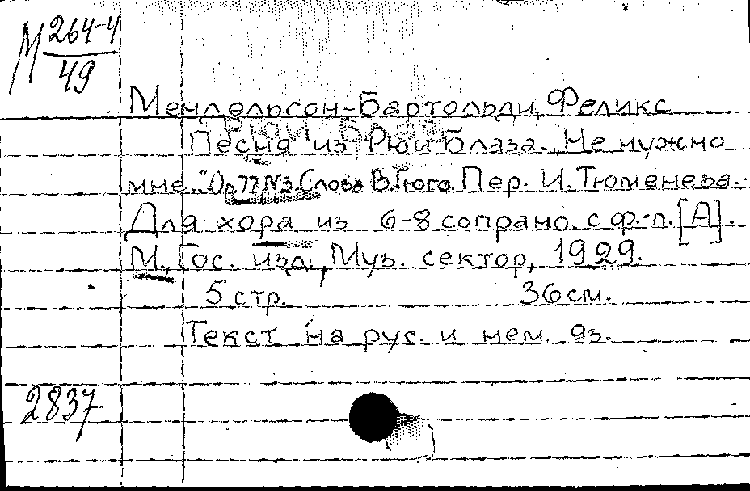 М 264-4
49
Мендельсон-Бартольди, Феликс
Песня из Рюи Блаза. „Не нужно
мне.“ Op. 77 №3. Слова В. Гюго. Пер. И. Тюменева.
Для хора из 6-8 сопрано с ф.-п. [А].
М., Гос. изд., Муз. сектор, 1929.
5 стр. 36 см.
Текст на рус. и нем. яз.
2837